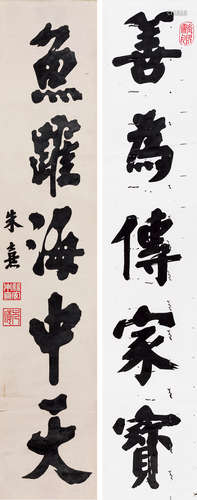 善為傳家寶
魚躍海中天
朱熹